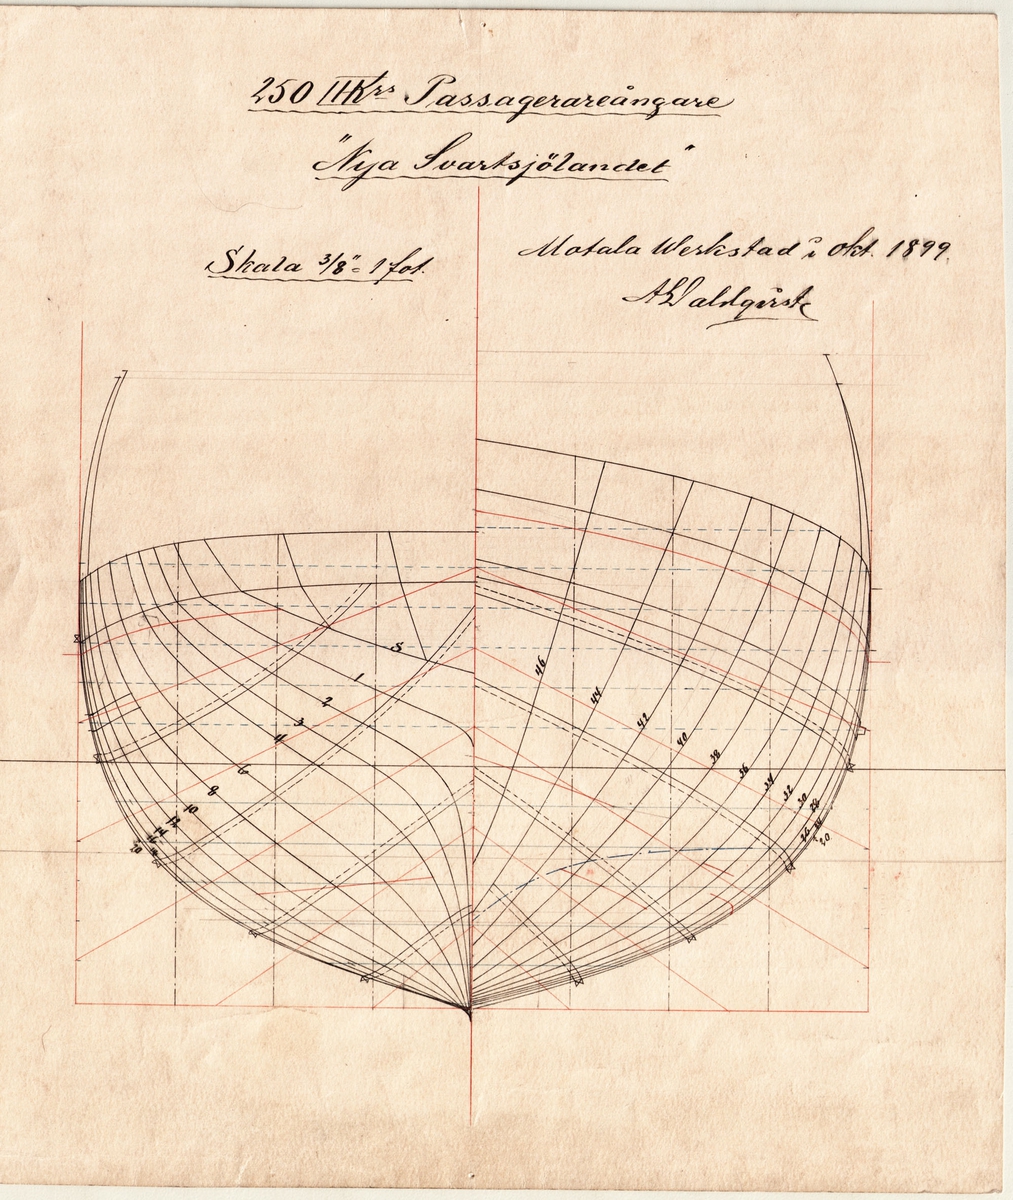 250 IHKrs Passagerareångare
"Nya Svartsjölandet"
Skala 3/8" = 1 fot.
Motala Werkstad i Okt. 1899.
S
1
2
3
4
6
8
10
46
44
42
40
38
36
34
32
30
28
20